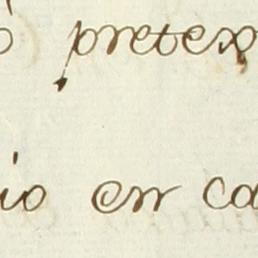 ó pretex
io en ca